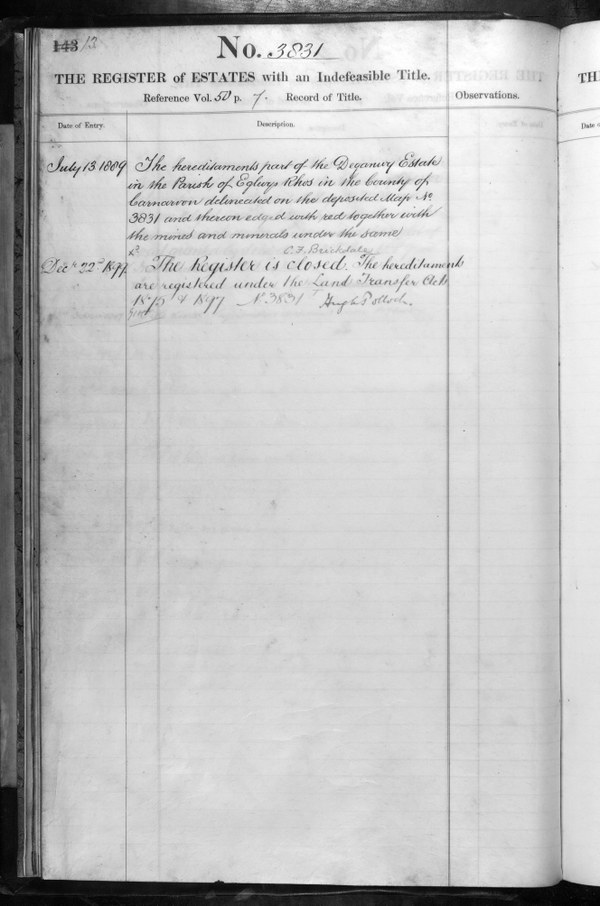 143 13
No. 3831
THE REGISTER of ESTATES with an Indefeasible Title.
Reference Vol. 50 p. 7. Record of Title.
Observations.
Date of Entry.
Description.
July 13 1889
The hereditaments part of the Deganwy Estate
in the Parish of Eglwys Rhos in the County of
Carnarvon delineated on the deposited Map No
3831 and thereon edged with red together with
the mines and minerals under the same
C. F. Brickdale
Decr 22d 1899
The Register is closed. The hereditaments
are registered under the Land Transfer Acts
1875 & 1897 No 3831 Hugh Pollock
TH
Date o